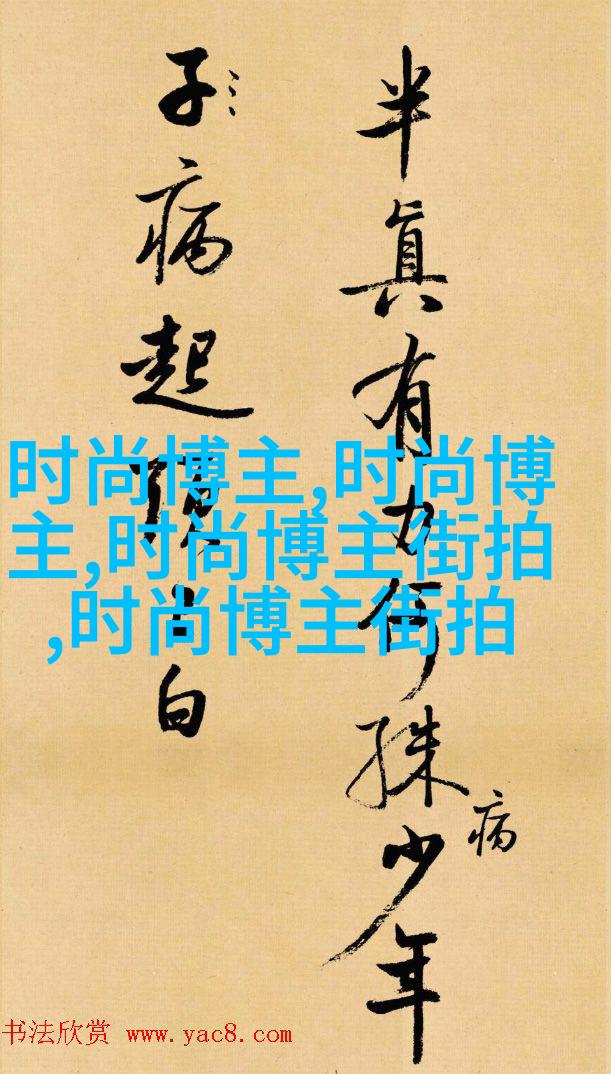 半真有力何殊少年
病
子病起須已白
时尚博主,时尚博
主,时尚博主街拍
,时尚博主街拍
书法欣赏 www.yac8.com